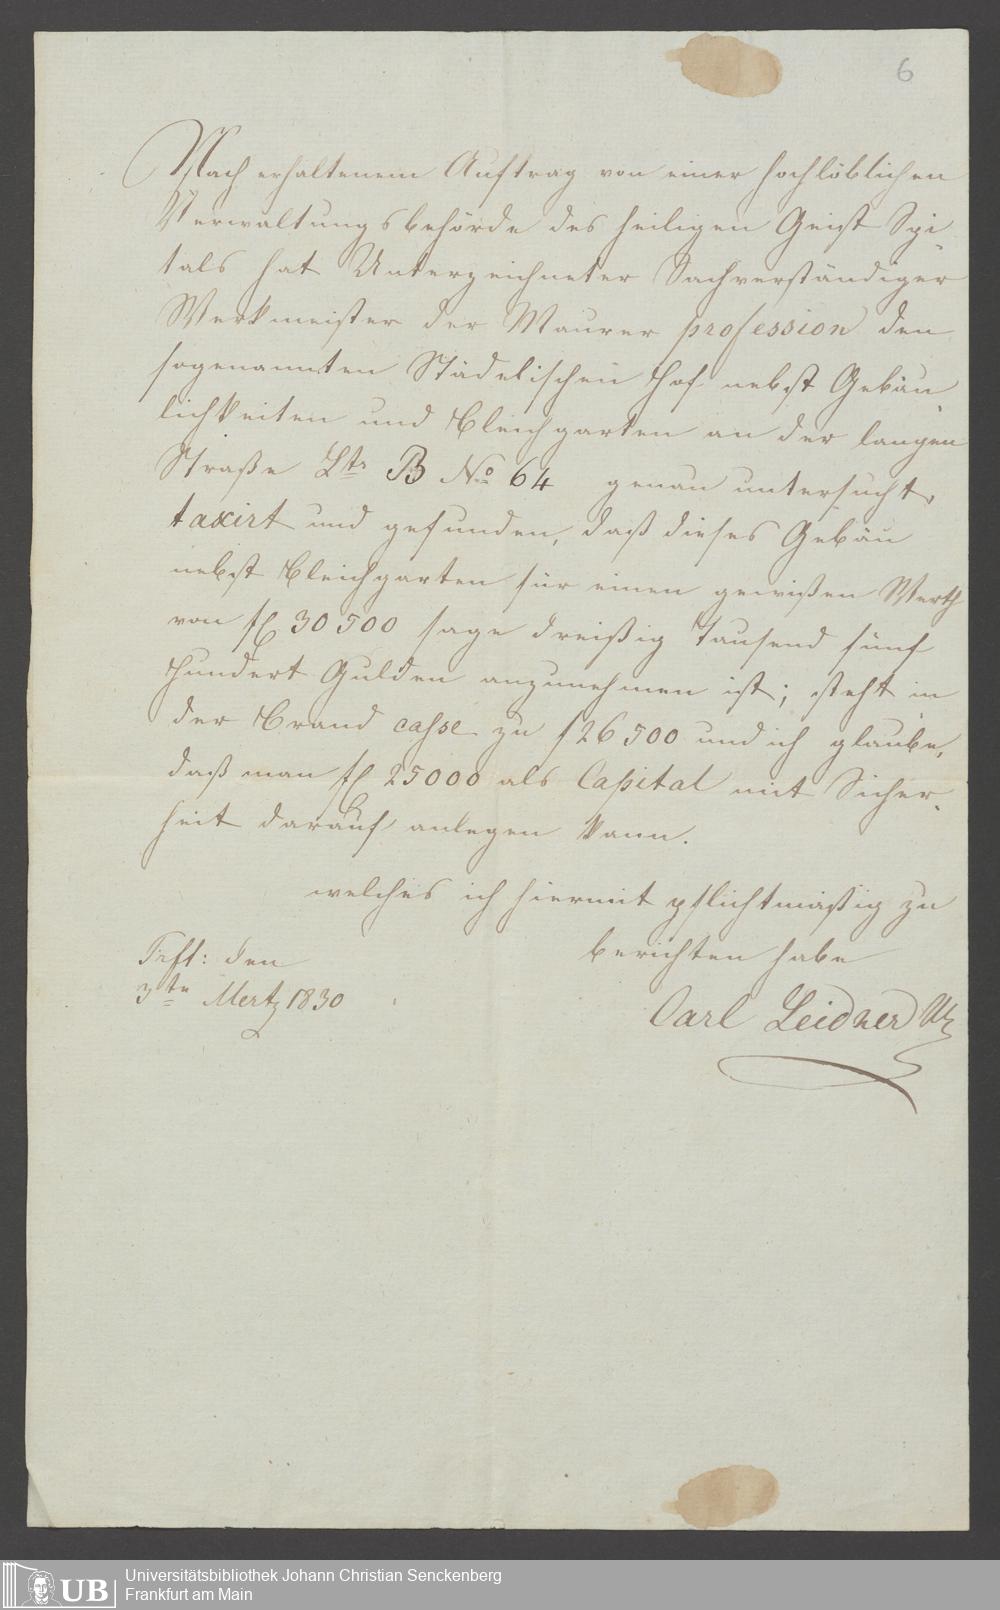 6
Nach erhaltenem Auftrag von einer hochlöblichen
Verwaltungsbehörde des heiligen Geist Spi-
tals hat Unterzeichneter Sachverständiger
Werkmeister der Maurer profession den
sogenannten Städelischen Hof nebst Gebäu-
lichkeiten und Bleichgarten an der langen
Straße Ltr B No 64 genau untersucht,
taxirt und gefunden, daß dieses Gebäu
nebst Bleichgarten für einen gewißen Werth
von fl 30500 sage dreißig Tausend fünf
Hundert Gulden anzunehmen ist; steht in
der Brand casse zu f 26500 und ich glaube,
daß man fl 25000 als Capital mit Sicher-
heit darauf anlegen kann.
welches ich hiermit pflichtmäßig zu
berichten habe
Frft: den
3ten Mertz 1830
Carl Leidner
UB
Universitätsbibliothek Johann Christian Senckenberg
Frankfurt am Main